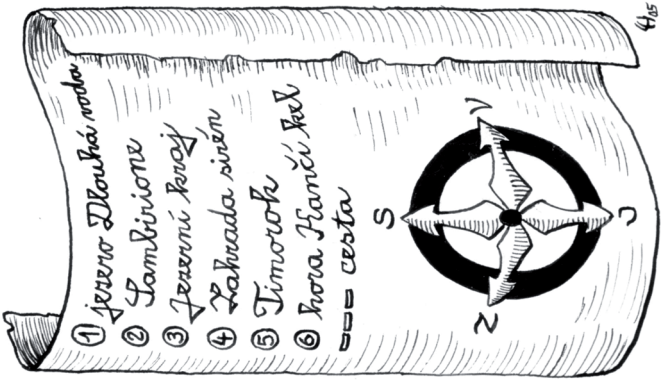 ① jezero Dlouhá voda
② Sambirione
③ Jezerní kraj
④ Zahrada sirén
⑤ Timorok
⑥ hora Kančí kel
cesta
S
Z V
J